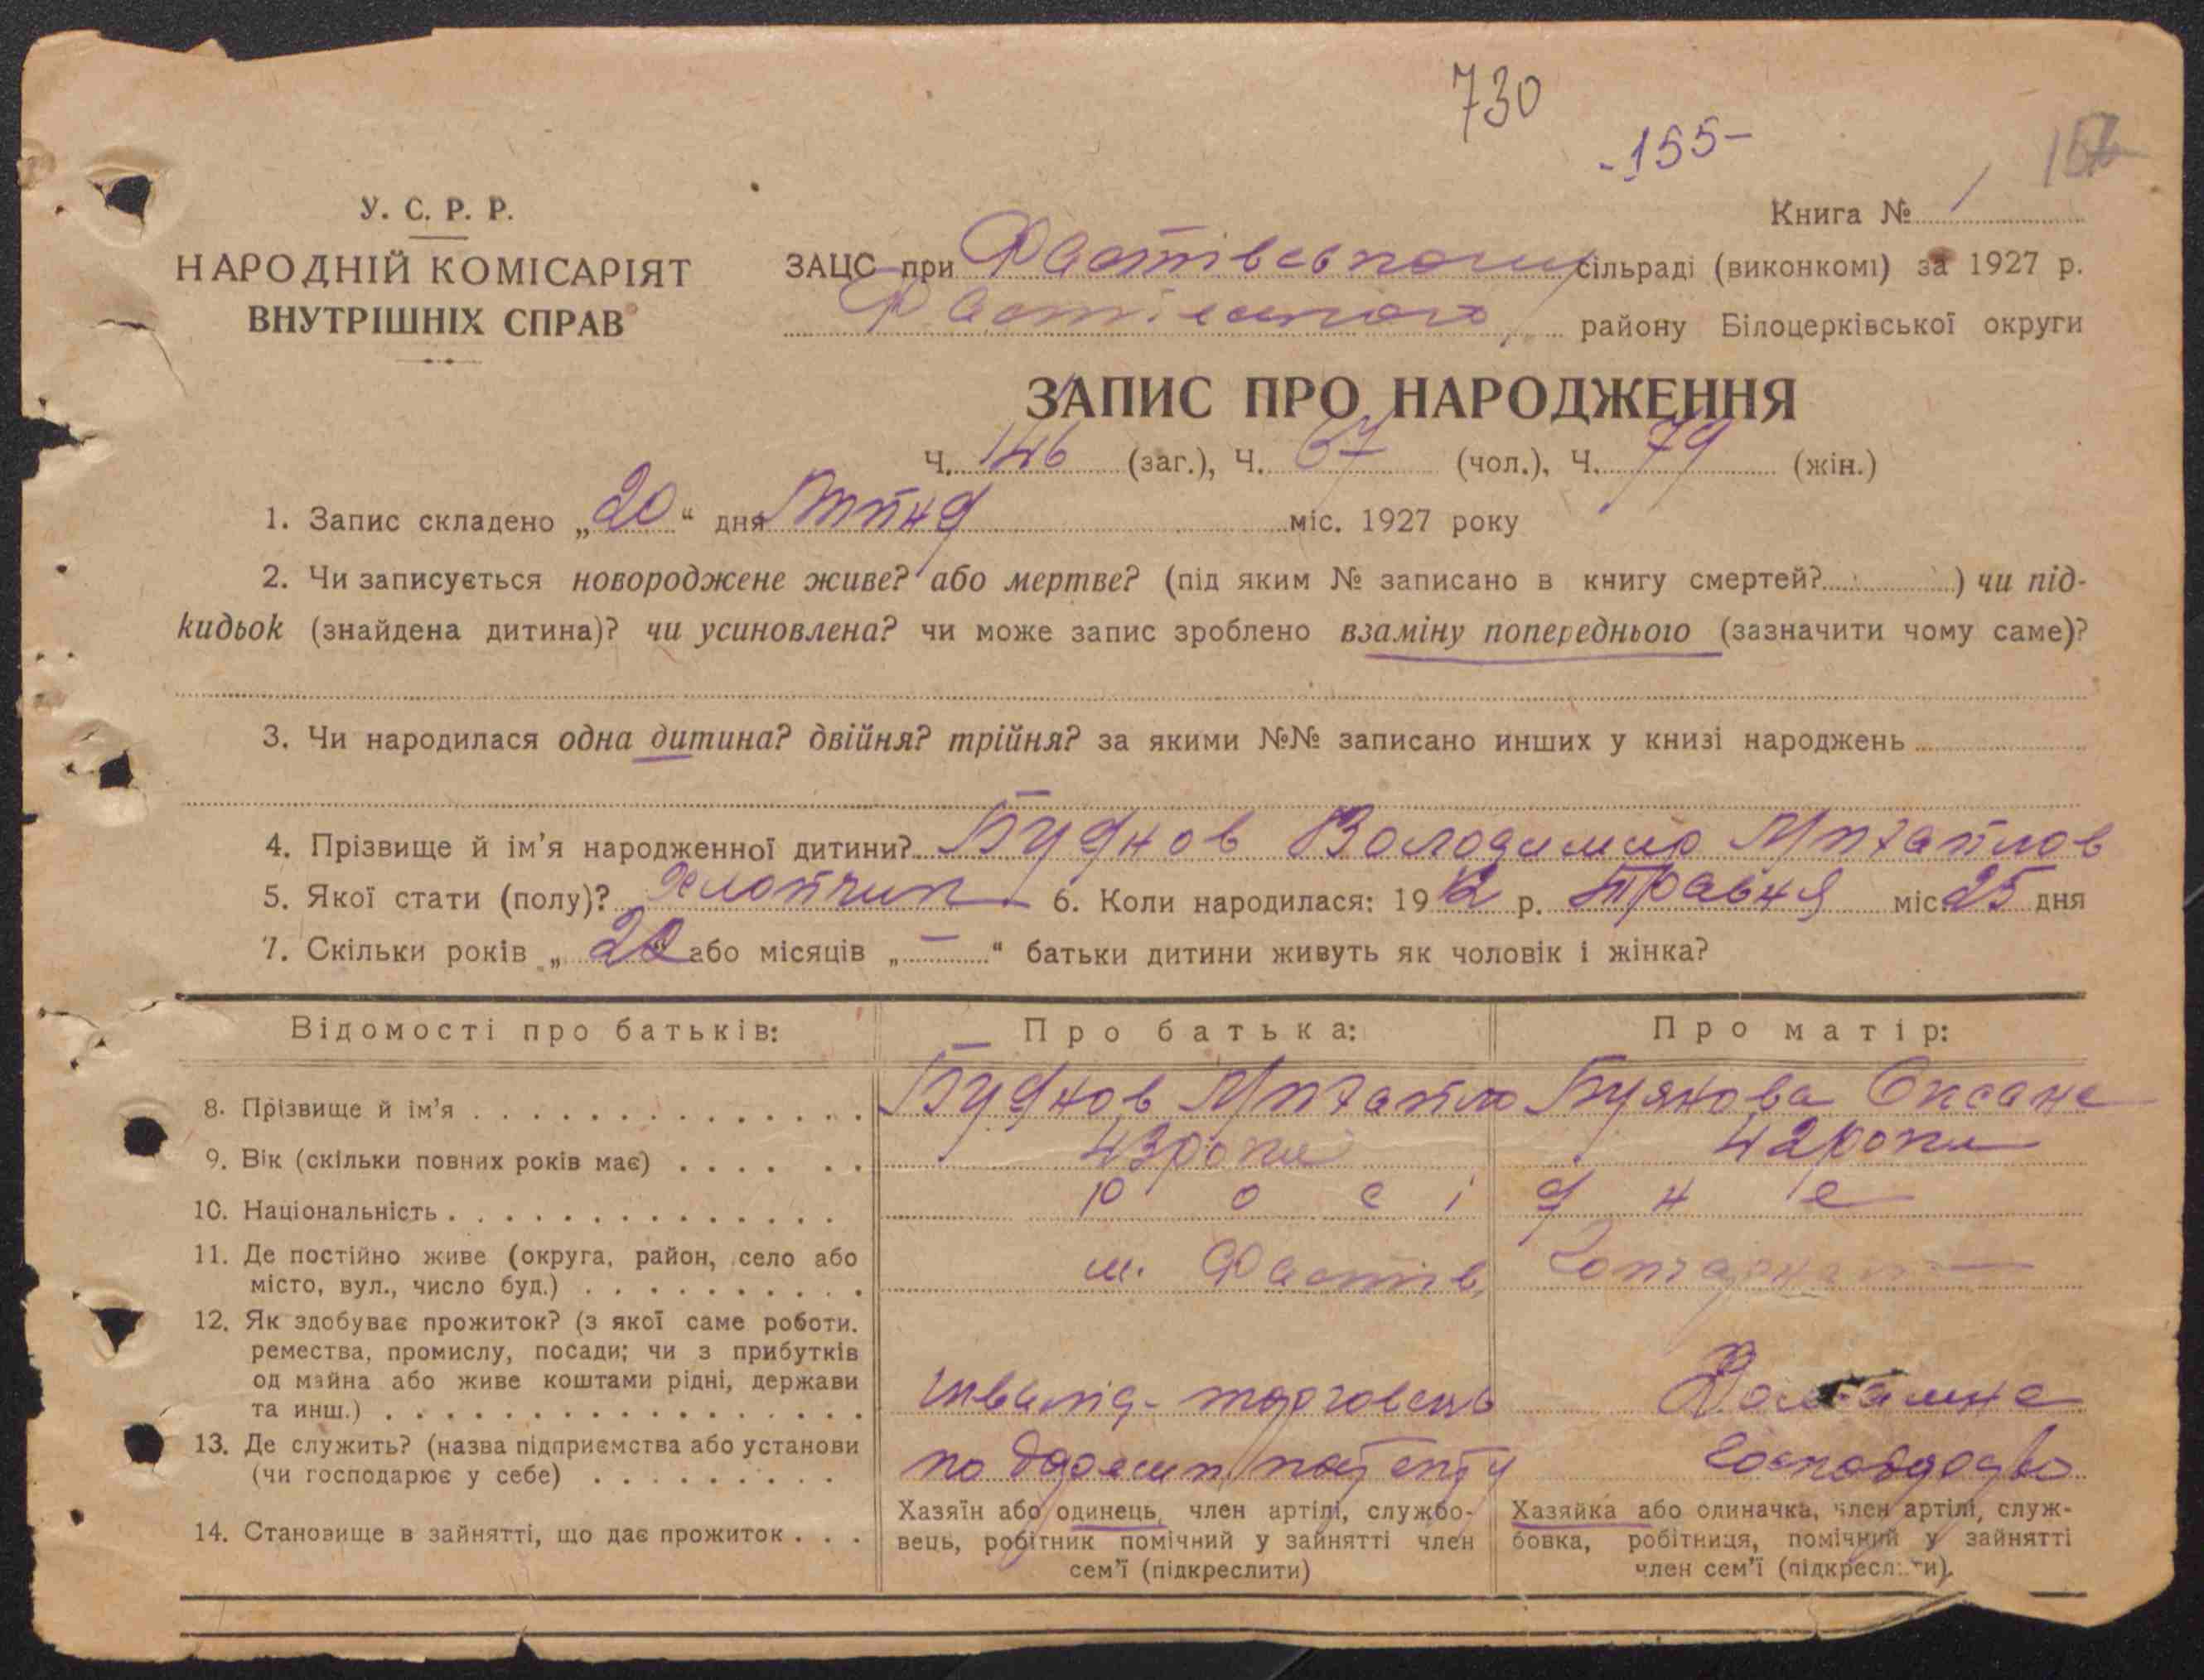 730
-155-
У. С. Р. Р.
НАРОДНІЙ КОМІСАРІЯТ
ВНУТРІШНІХ СПРАВ
Книга № 1
ЗАЦС при Фастівському сільраді (виконкомі) за 1927 р.
Фастівського району Білоцерківської округи
ЗАПИС ПРО НАРОДЖЕННЯ
Ч. 146 (заг.), Ч. 67 (чол.), Ч. 79 (жін.)
1. Запис складено „20“ дня Липня міс. 1927 року
2. Чи записується новороджене живе? або мертве? (під яким № записано в книгу смертей? ) чи під-
кидьок (знайдена дитина)? чи усиновлена? чи може запис зроблено взаміну попереднього (зазначити чому саме)?
3. Чи народилася одна дитина? двійня? трійня? за якими №№ записано инших у книзі народжень
4. Прізвище й ім'я народженної дитини? Буянов Володимир Михайлов
5. Якої стати (полу)? Хлопчик 6. Коли народилася: 1912 р. травня міс. 25 дня
7. Скільки років „20“ або місяців „—“ батьки дитини живуть як чоловік і жінка?
Відомості про батьків: Про батька: Про матір:
8. Прізвище й ім'я Буянов Михайло Буянова Оксана
9. Вік (скільки повних років має) 43 роки 42 роки
10. Національність росіяне
11. Де постійно живе (округа, район, село або
місто, вул., число буд.) м. Фастів,
12. Як здобуває прожиток? (з якої саме роботи.
ремества, промислу, посади; чи з прибутків
од майна або живе коштами рідні, держави
та инш.) інвалід-торговець Домашне
13. Де служить? (назва підприємства або установи
(чи господарює у себе) по патенту господарство
14. Становище в зайнятті, що дає прожиток
Хазяїн або одинець, член артілі, службо-
вець, робітник помічний у зайнятті член
сем'ї (підкреслити)
Хазяйка або одиначка, член артілі, служ-
бовка, робітниця, помічний у зайнятті
член сем'ї (підкреслити).